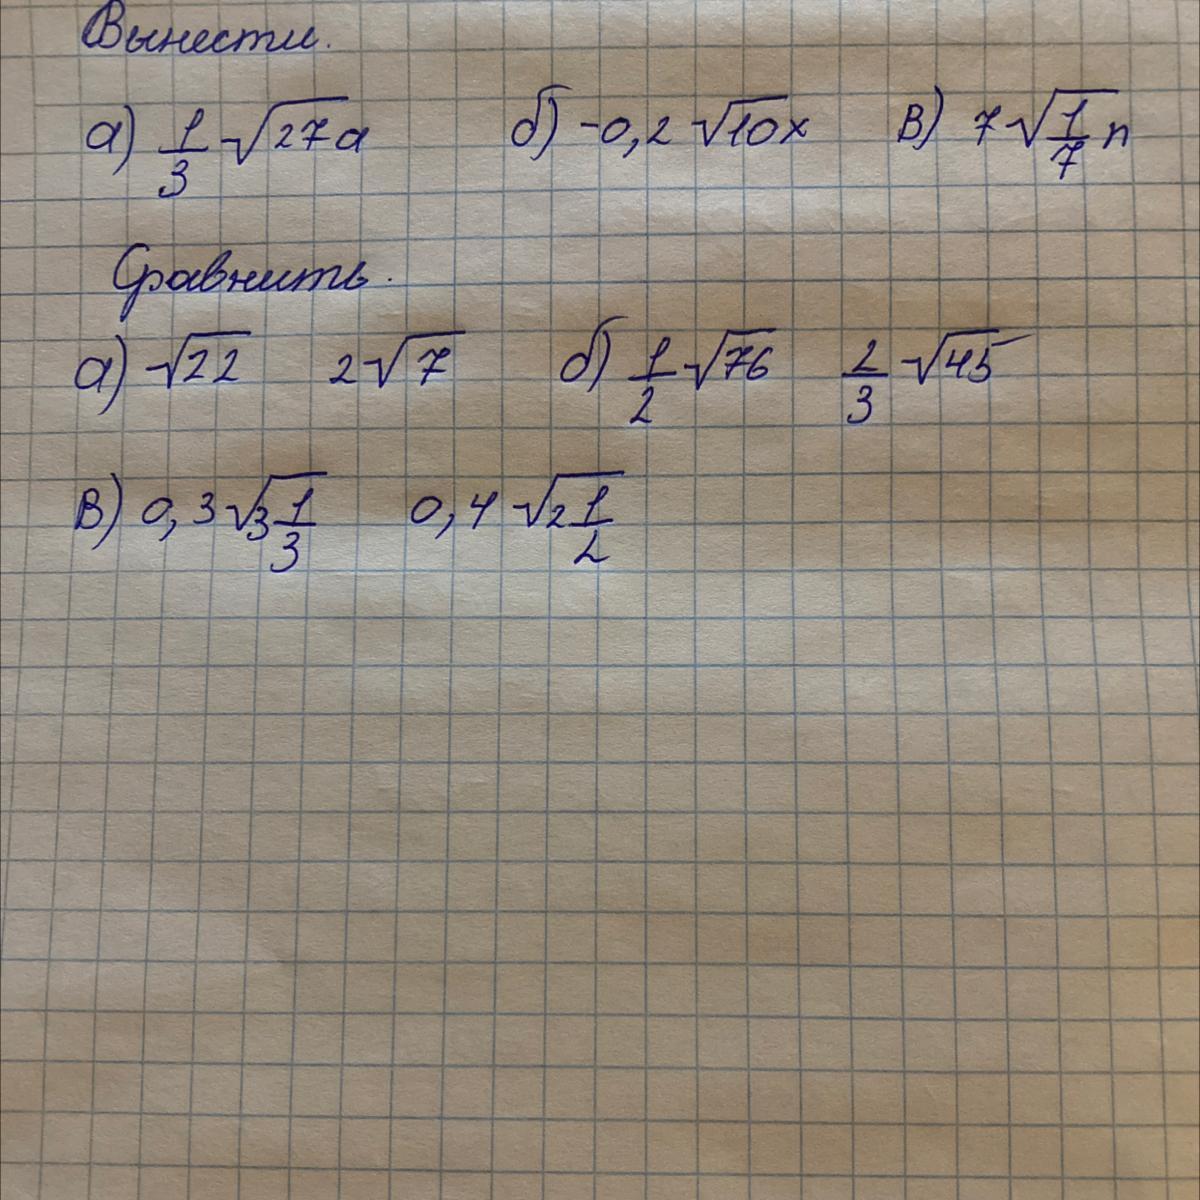 Вынести.
а) 1/3 √27а б) -0,2 √10x в) 7√1/7 n
Сравнить.
а) √22 2√7 б) 1/2 √76 2/3 √45
в) 0,3 √3 1/3 0,4 √2 1/2